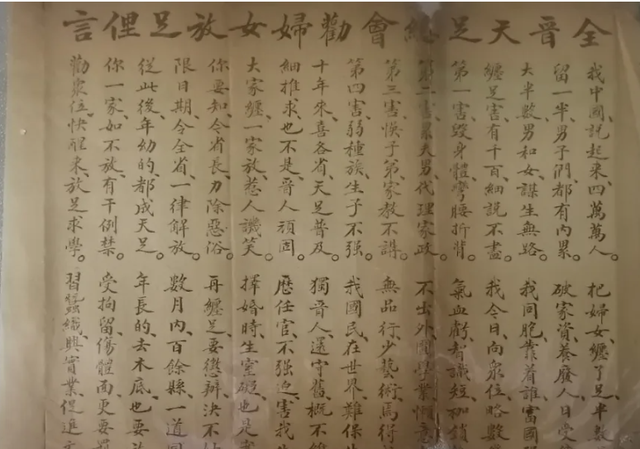 全晉天足總會勸婦女放足俚言
我中國、說起來、四萬萬人。把婦女、纏了足、半數
留一半、男子們、都有內累。破家資、養廢人、日受
大半數、男和女、謀生無路。我同胞、靠着誰、富國
纏足害、有千百、細說不盡。我今日、向衆位、略數
第一害、毀身體、彎腰折背。氣血虧、智識短、枷鎖
第二害、累丈夫、代理家政。不出外、圖學業、懶意
第三害、悞子弟、家教不講。無品行、少藝術、焉
第四害、弱種族、生子不强。我國民、在世界、難保
十年來、喜各省、天足普及。獨晉人、還守舊、概不
細推求、也不是、晉人頑固。歷任官、不强迫、害我
大家纏、一家放、惹人譏笑。擇婚時、生室礙、也是
你要知、令省長、力除惡俗。再纏足、要懲辦、決不
限日期、令全省、一律解放。數月內、百餘縣、一道同
從此後、年幼的、都成天足。年長的、去木底、也要
你一家、如不放、有干例禁。受拘留、傷體面、更要
勸衆位、快醒來、放足求學。習蠶織、興實業、促進